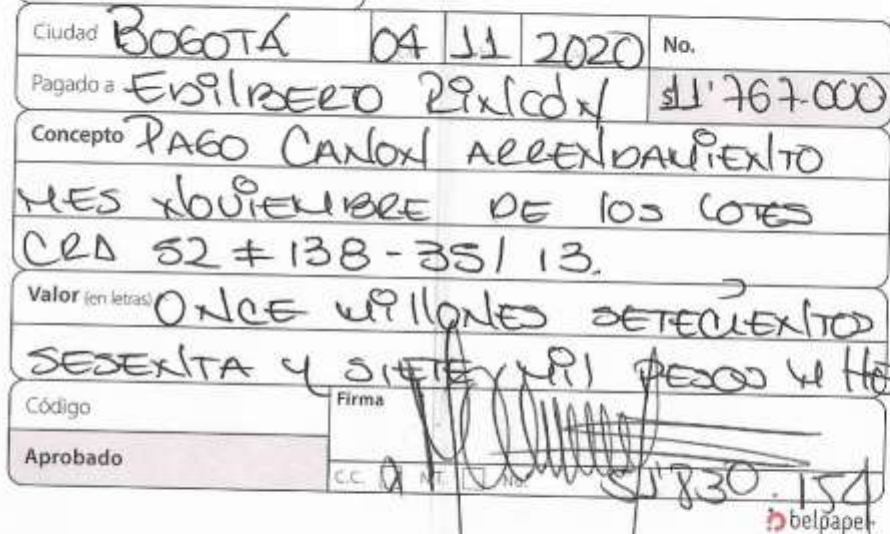 Ciudad BOGOTÁ 04 11 2020 No.
Pagado a EDILBERTO RINCÓN $11'767.000
Concepto PAGO CANON ARRENDAMIENTO
MES NOVIEMBRE DE LOS LOTES
CRA 52 # 138 - 35 / 13.
Valor (en letras) ONCE MILLONES SETECIENTOS
SESENTA Y SIETE MIL PESOS M
Código
Firma
Aprobado
C.C. NIT. No.
belpapel